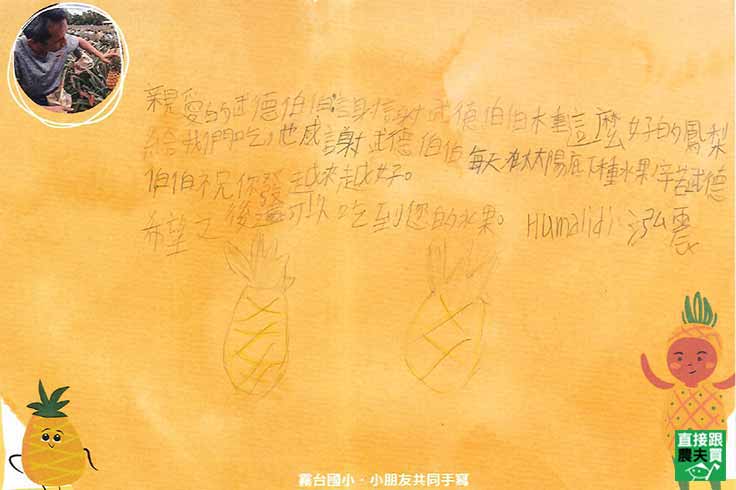 親愛的武德伯伯謝謝武德伯伯種這麼好的鳳梨
給我們吃,也感謝武德伯伯每天在太陽底下種水果辛苦武德
伯伯祝你發越來越好。
希望之後還可以吃到您的水果。 Humalidi 泓雲
直接跟
農夫買
霧台國小・小朋友共同手寫